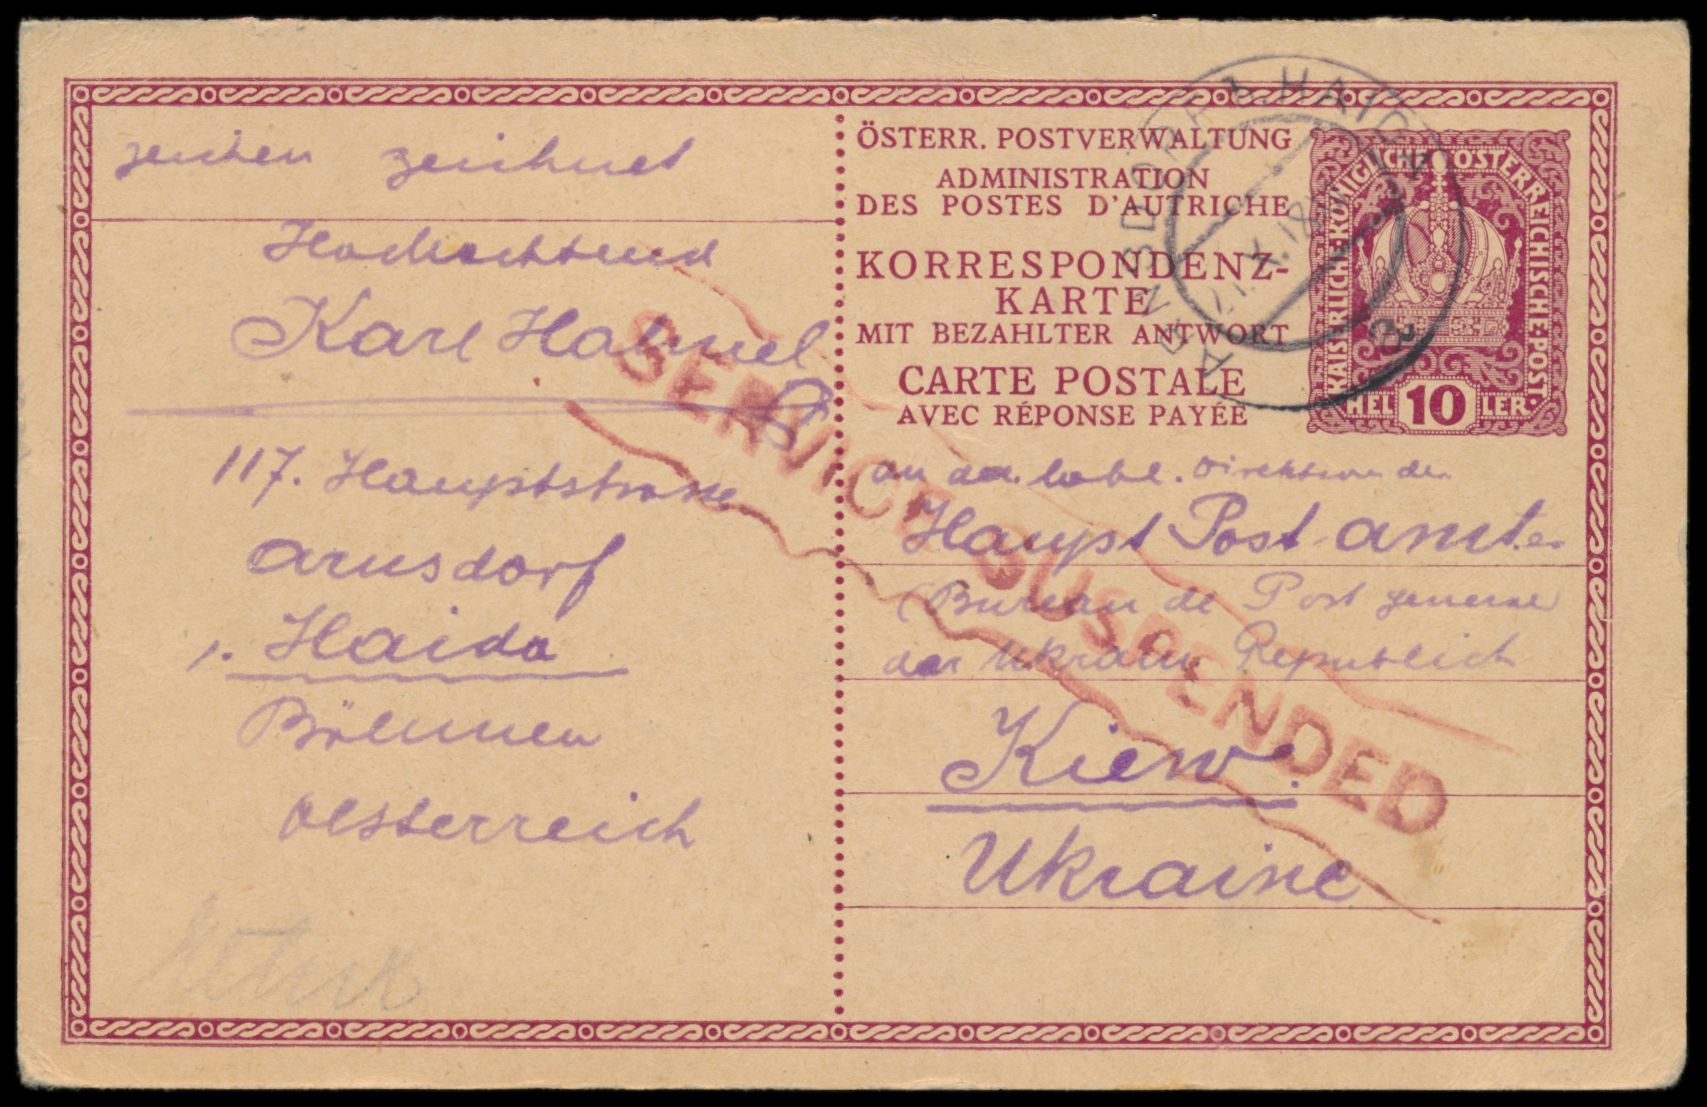 zeichen zeichnet
Hochachtend
Karl Hahnel
117. Hauptstrasse
Arnsdorf
b. Haida
Böhmen
Oesterreich
ÖSTERR. POSTVERWALTUNG
ADMINISTRATION
DES POSTES D'AUTRICHE
KORRESPONDENZ-
KARTE
MIT BEZAHLTER ANTWORT
CARTE POSTALE
AVEC RÉPONSE PAYÉE
KAISERLICHE·KÖNIGLICHE ÖSTERREICHISCHE·POST.
HELLER
10
ARNSDORF b. HAIDA
X.18
SERVICE SUSPENDED
an der löbl. Direktion der
Haupt Post amtes
(Bureau de Post general
der Ukrain Republick
Kiew.
Ukraine